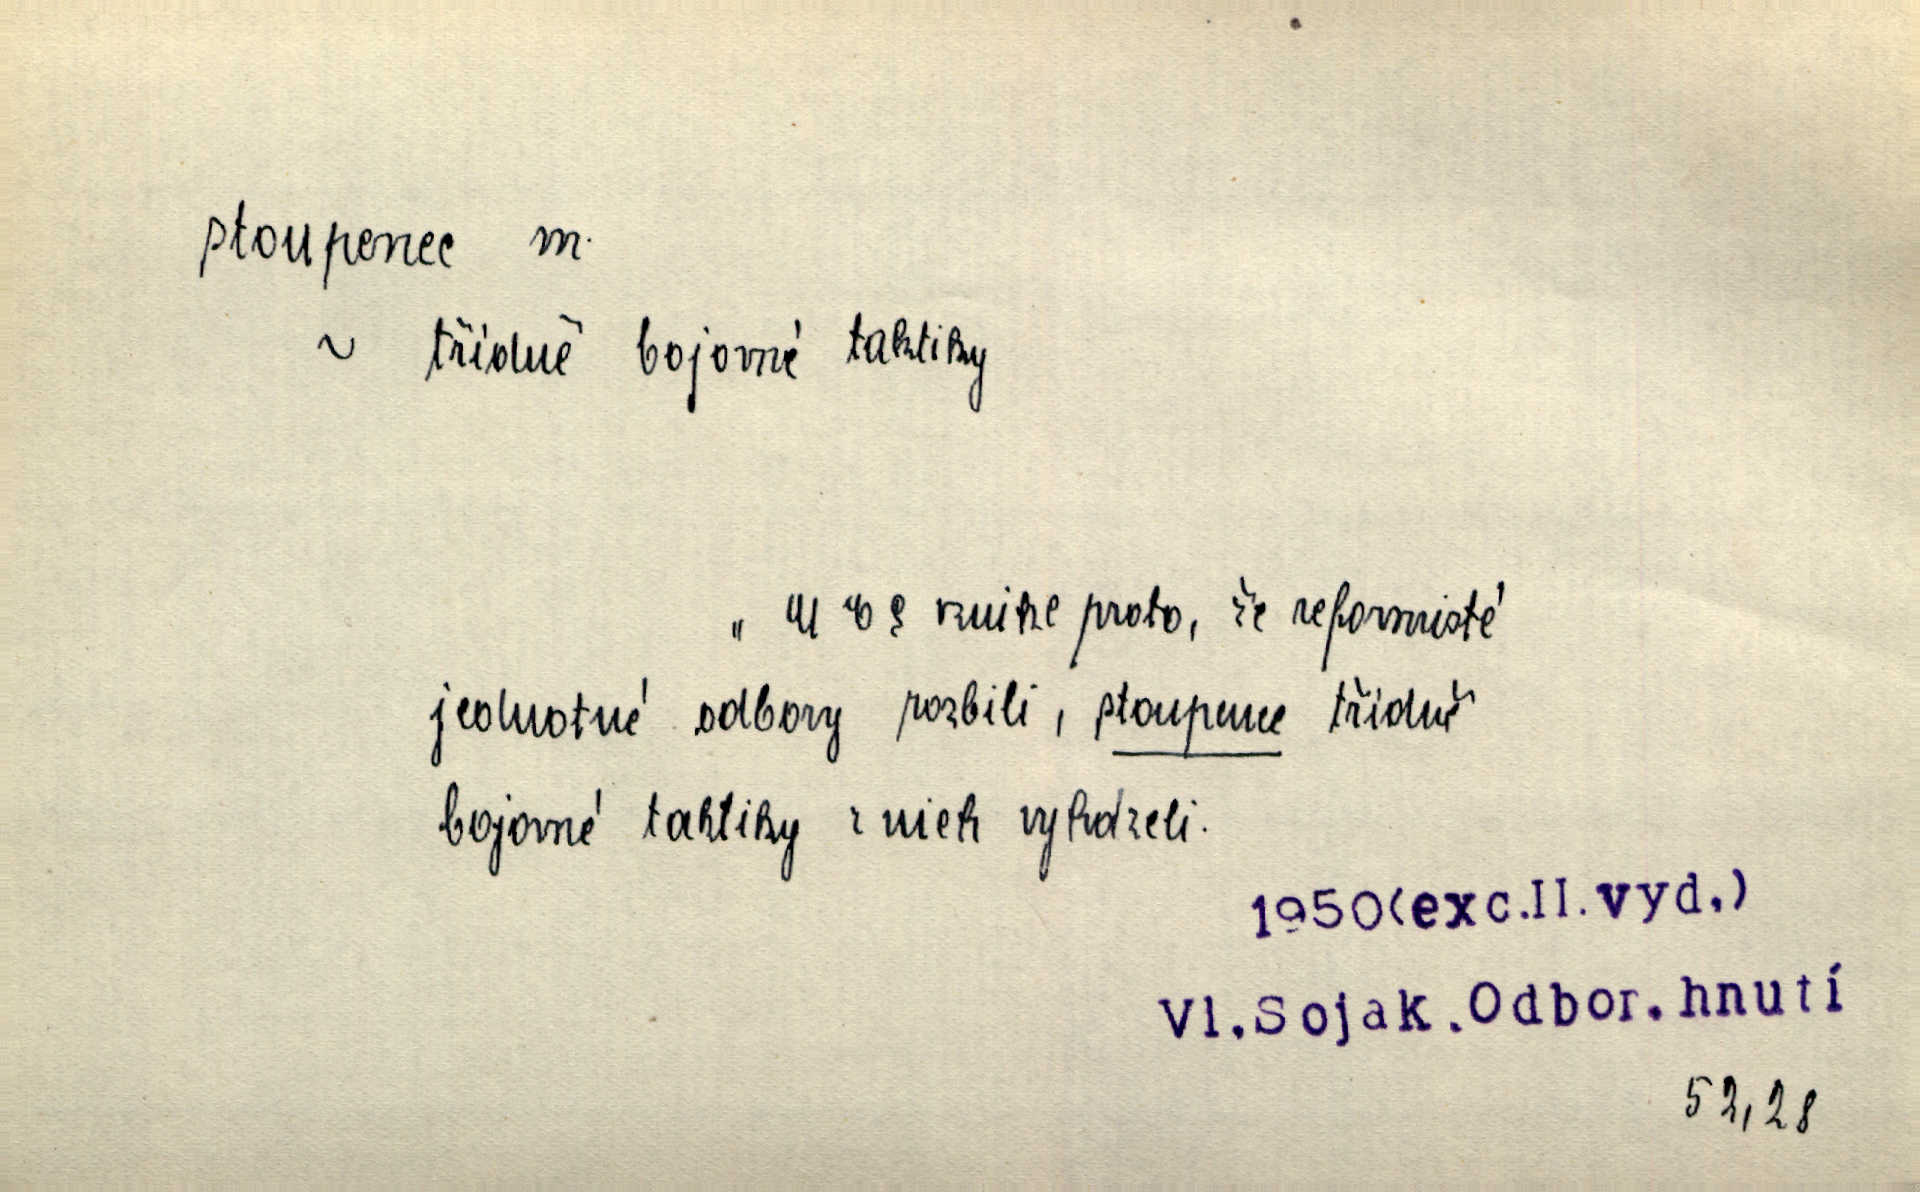 stoupenec m.
~ třídně bojovné taktiky
„ vznikl proto, že reformisté
jednotné odbory rozbili, stoupence třídně
bojovné taktiky z nich vyházeli.
1950(exc.II.vyd.)
Vl.Soják.Odbor.hnutí
52,28